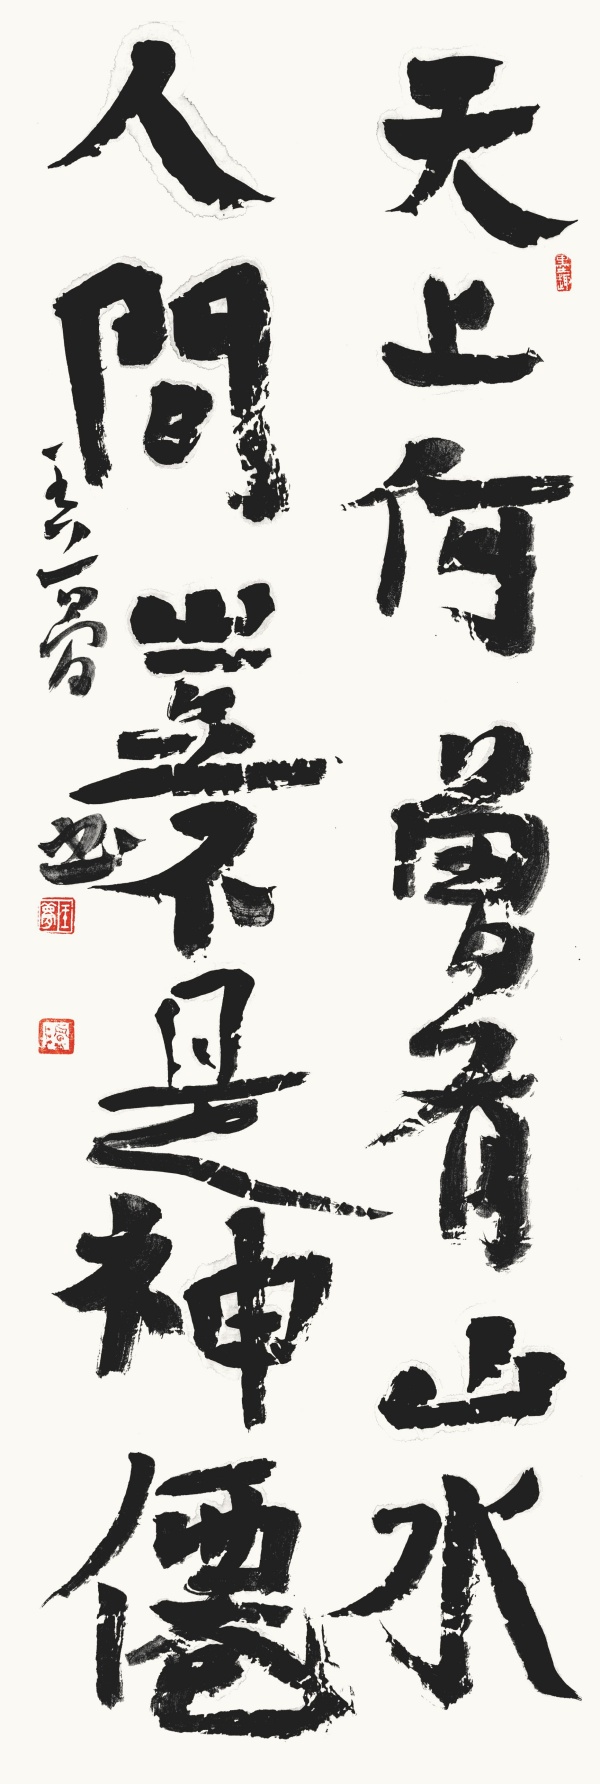 天上何曾有山水
人間豈不是神僊